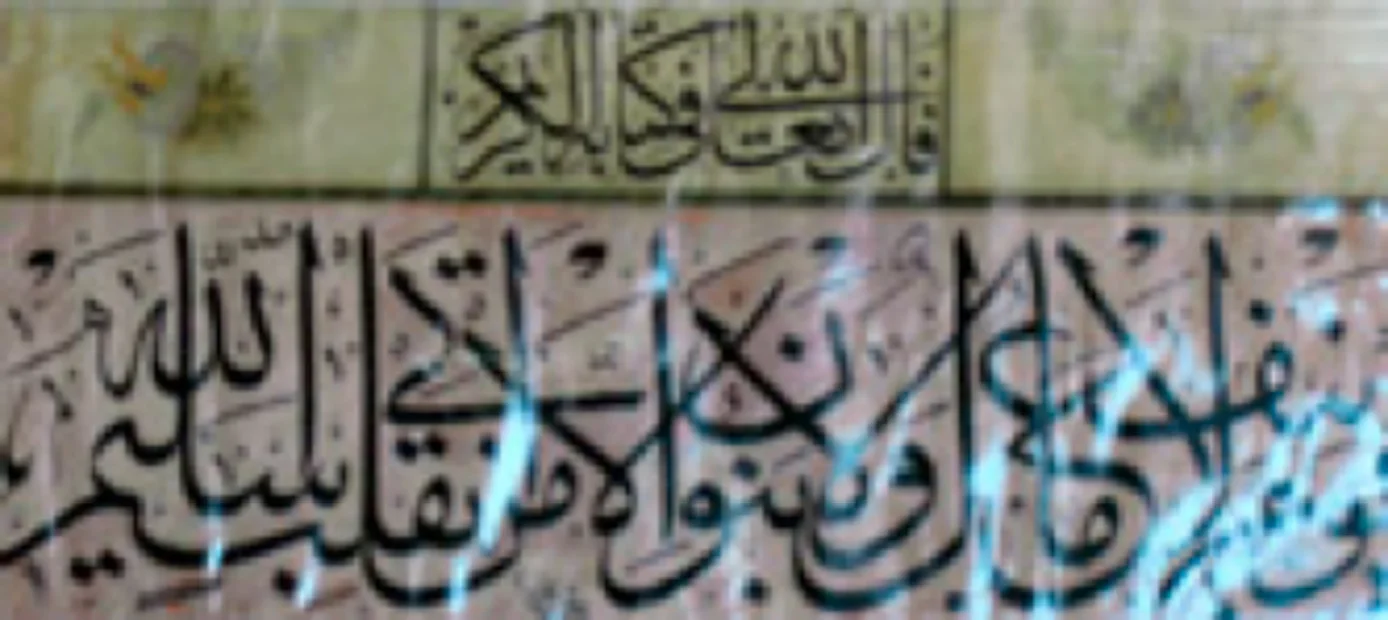 قال الله تعالى في كتابه الكريم
يوم لا ينفع مال ولا بنون إلا من أتى الله بقلب سليم